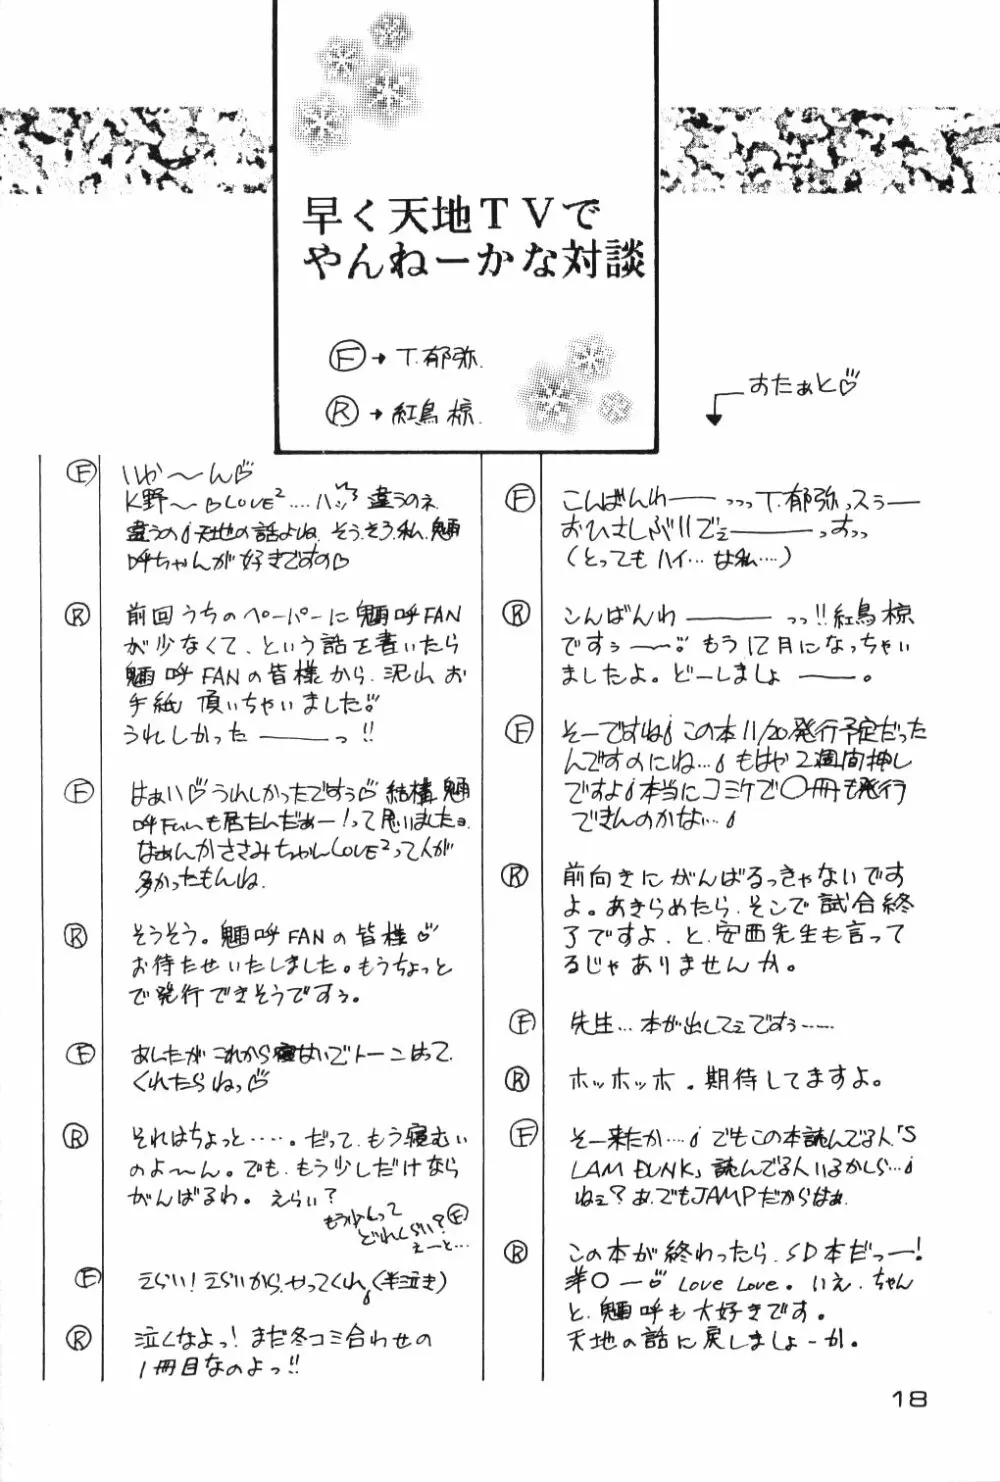 早く天地TVで
やんねーかな対談
Ⓕ→T.郁弥.
Ⓡ→紅鳥 椋.
すたぁと♡
Ⓕ こんばんわ――っっっT.郁弥っスぅー
おひさしぶりでぇ―――っすっっ
(とってもハイ…な私…)
Ⓡ こんばんわ―――っっ!!紅鳥 椋
ですぅ――。もう12月になっちゃい
ましたよ。どーしましょ――。
Ⓕ そーですね この本11/20発行予定だった
んですのにね… もはや2週間押し
ですよ 本当にコミケで〇冊も発行
できんのかな…
Ⓡ 前向きにがんばるっきゃないです
よ。あきらめたら、そこで試合終
了ですよ、と、安西先生も言って
るじゃありませんか。
Ⓕ 先生…本が出してぇですぅ……
Ⓡ ホッホッホ。期待してますよ。
Ⓕ そー来たか… でもこの本読んでる人「S
LAM DUNK」読んでる人いるかしら…
ねぇ?あ、でもJAMPだからなぁ
Ⓡ この本が終わったら、SD本だっー!
洋〇ー♡ Love Love。いえ、ちゃん
と、魎呼も大好きです。
天地の話に戻しましょーか。
Ⓕ いか〜ん♡
K野〜♡LOVE²….ハッ 違うのネ
違うの 天地の話よね、そうそう、私、魎
呼ちゃんが好きですの♡
Ⓡ 前回うちのペーパーに魎呼FAN
が少なくて、という話を書いたら
魎呼FANの皆様から、沢山お
手紙 頂いちゃいました。
うれしかった――っ!!
Ⓕ はぁい♡うれしかったですぅ♡結構、魎
呼FANも居たんだぁー!って思いました。
なぁんかささみちゃんLOVE²って人が
多かったもんね.
Ⓡ そうそう。魎呼FANの皆様♡
お待たせいたしました。もうちょっと
で発行できそうですぅ。
Ⓕ あしたがこれから寝ないでトーンはって
くれたらねっ♡
Ⓡ それはちょっと……。だって、もう寝むい
のよ〜ん。でも、もう少しだけなら
がんばるわ。えらい?
もう少しって
どれくらい?Ⓕ
えーと…
Ⓕ えらい!えらいから、やってくれ(半泣き)
Ⓡ 泣くなよっ!まだ冬コミ合わせの
1冊目なのよっ!!
18